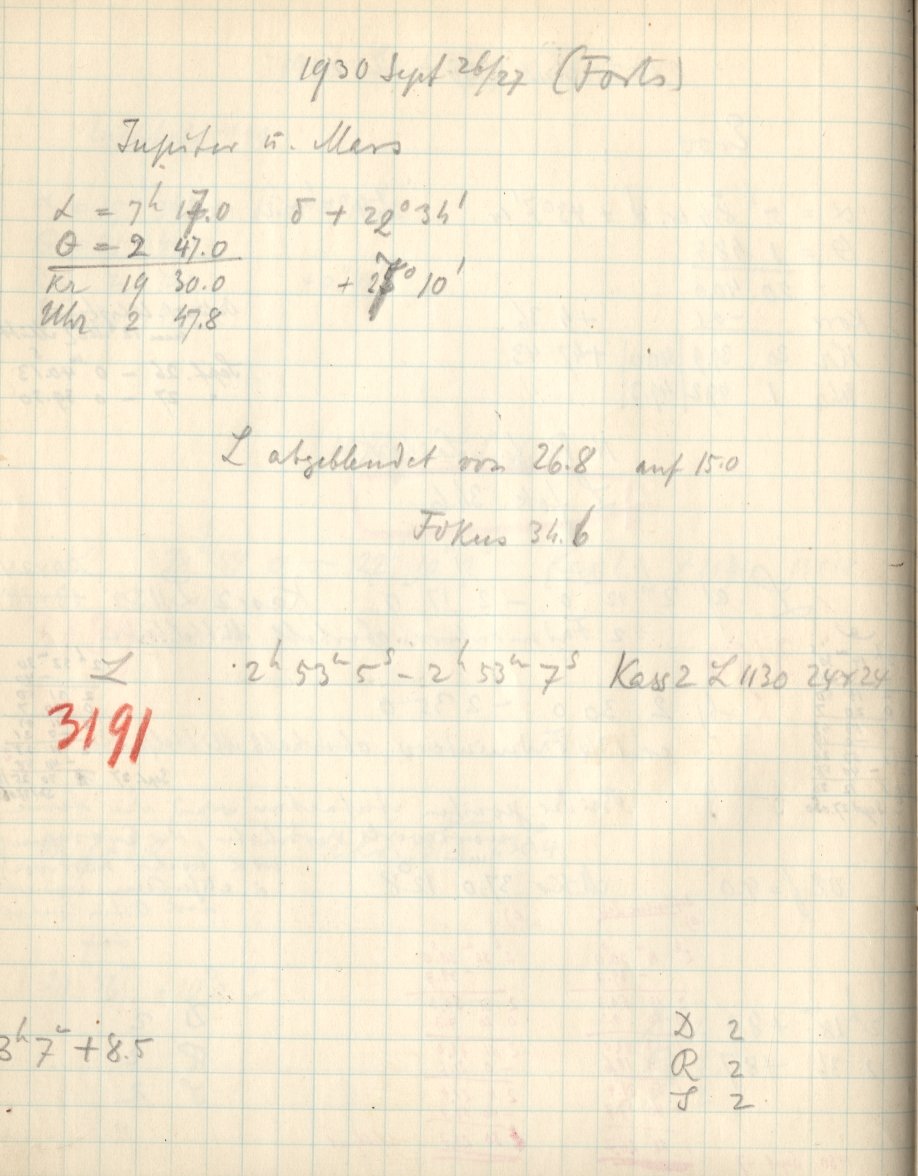 1930 Sept 26/27 (Forts)
Jupiter u. Mars
α = 7h 17.0 δ + 22° 34'
θ = 2 47.0
Kr 19 30.0 + 27° 10'
Uhr 2 47.8
L abgeblendet von 26.8 auf 15.0
Fokus 34.6
L 2h 53m 5s - 2h 53m 7s Kass 2 L 1130 24x24
3191
3h 7m + 8.5
D 2
R 2
S 2